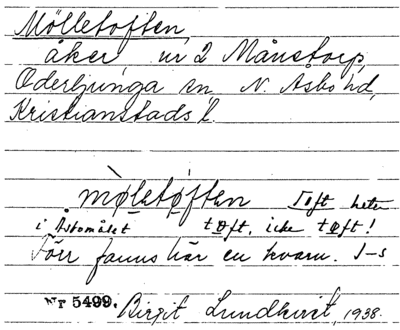 Mölletoften,
åker nr 2 Månstorp,
Oderljunga sn N. Åsbo hd,
Kristianstads l.
mø̀letøften Toft heter
i Åsbomålet tøft, icke tøft!
Förr fanns här en kvarn. I-s
Nr 5499. Birgit Lundkvist, 1938.